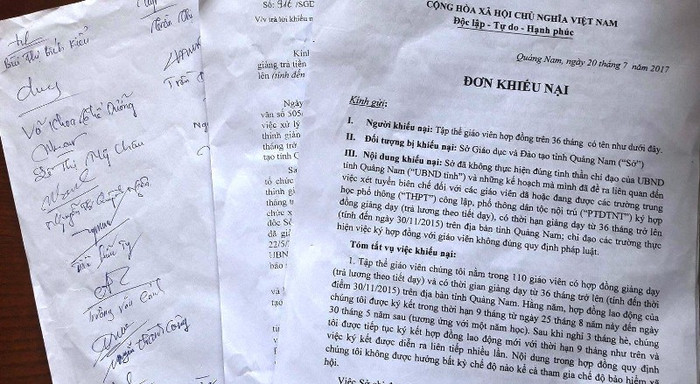 Bùi Thị Bích Kiều
Trần
Võ Khoa
Mỹ Châu
Số: 916 /SGD
V/v trả lời khiếu n
Kính
giảng trả tiền
lên (tính đến
Ngày
văn số 505/
việc xử lý
thỉnh giản
tháng trở
tạo tỉnh C
Sa
tổ chức
thỉnh gi
tháng t
chức x
đốc Sở
đã giả
22/5/
UBN
báo
CỘNG HÒA XÃ HỘI CHỦ NGHĨA VIỆT NAM
Độc lập - Tự do - Hạnh phúc
Quảng Nam, ngày 20 tháng 7 năm 2017
ĐƠN KHIẾU NẠI
Kính gửi:
I. Người khiếu nại: Tập thể giáo viên hợp đồng trên 36 tháng có tên như dưới đây.
II. Đối tượng bị khiếu nại: Sở Giáo dục và Đào tạo tỉnh Quảng Nam ("Sở")
III. Nội dung khiếu nại: Sở đã không thực hiện đúng tinh thần chỉ đạo của UBND
tỉnh Quảng Nam ("UBND tỉnh") và những kế hoạch mà mình đã đề ra liên quan đến
việc xét tuyển biên chế đối với các giáo viên đã hoặc đang được các trường trung
học phổ thông ("THPT") công lập, phổ thông dân tộc nội trú ("PTDTNT") ký hợp
đồng giảng dạy (trả lương theo tiết dạy), có thời hạn giảng dạy từ 36 tháng trở lên
(tính đến ngày 30/11/2015) trên địa bàn tỉnh Quảng Nam; chỉ đạo các trường thực
hiện việc ký hợp đồng với giáo viên không đúng quy định pháp luật.
Tóm tắt vụ việc khiếu nại:
1. Tập thể giáo viên chúng tôi nằm trong 110 giáo viên có hợp đồng giảng dạy
(trả lương theo tiết dạy) và có thời gian giảng dạy từ 36 tháng trở lên (tính đến thời
điểm 30/11/2015) trên địa bàn tỉnh Quảng Nam. Hàng năm, hợp đồng lao động của
chúng tôi được ký kết trong thời hạn 9 tháng từ ngày 25 tháng 8 năm này đến ngày
30 tháng 5 năm sau (tương ứng với một năm học). Sau khi nghỉ 3 tháng hè, chúng
tôi được tiếp tục ký kết hợp đồng lao động mới với thời hạn 9 tháng như trên và
việc ký kết được diễn ra liên tiếp nhiều lần. Nội dung trong hợp đồng quy định
chúng tôi không được hưởng bất kỳ chế độ nào kể cả tham gia chế độ bảo hiểm xã
hội.
Việc Sở